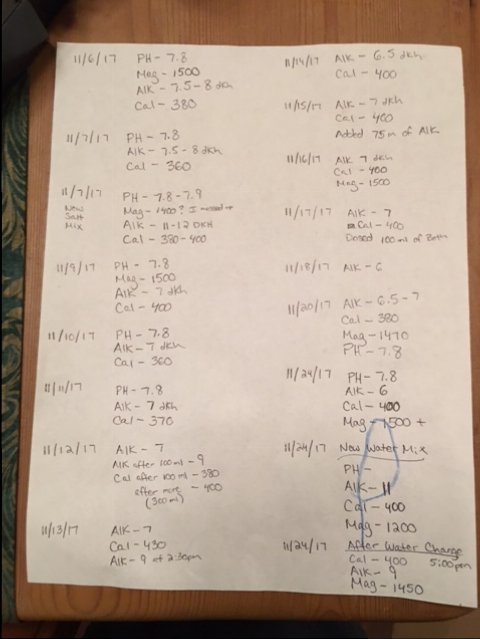 11/6/17 PH - 7.8
Mag - 1500
Alk - 7.5 - 8 dkh
Cal - 380
11/7/17 PH - 7.8
Alk - 7.5 - 8 dkh
Cal - 360
11/7/17 PH - 7.8 - 7.9
New Salt Mix
Mag - 1400? I messed
Alk - 11-12 DKH
Cal - 380-400
11/9/17 PH - 7.8
Mag - 1500
Alk - 7 dkh
Cal - 400
11/10/17 PH - 7.8
Alk - 7 dkh
Cal - 360
11/11/17 PH - 7.8
Alk - 7 dkh
Cal - 370
11/12/17 Alk - 7
Alk after 100ml - 9
Cal after 100ml - 380
after more - 400
(300ml)
11/13/17 Alk - 7
Cal - 430
Alk - 9 at 2:30pm
11/14/17 Alk - 6.5 dkh
Cal - 400
11/15/17 Alk - 7 dkh
Cal - 400
Added 75m of Alk
11/16/17 Alk 7 dkh
Cal - 400
Mag - 1500
11/17/17 Alk - 7
Cal - 400
Dosed 100ml of Both
11/18/17 Alk - 6
11/20/17 Alk - 6.5 - 7
Cal - 380
Mag - 1470
PH - 7.8
11/24/17 PH - 7.8
Alk - 6
Cal - 400
Mag - 1500 +
11/24/17 New Water Mix
PH -
Alk - 11
Cal - 400
Mag - 1200
11/24/17 After Water Change
Cal - 400 5:00pm
Alk - 9
Mag - 1450